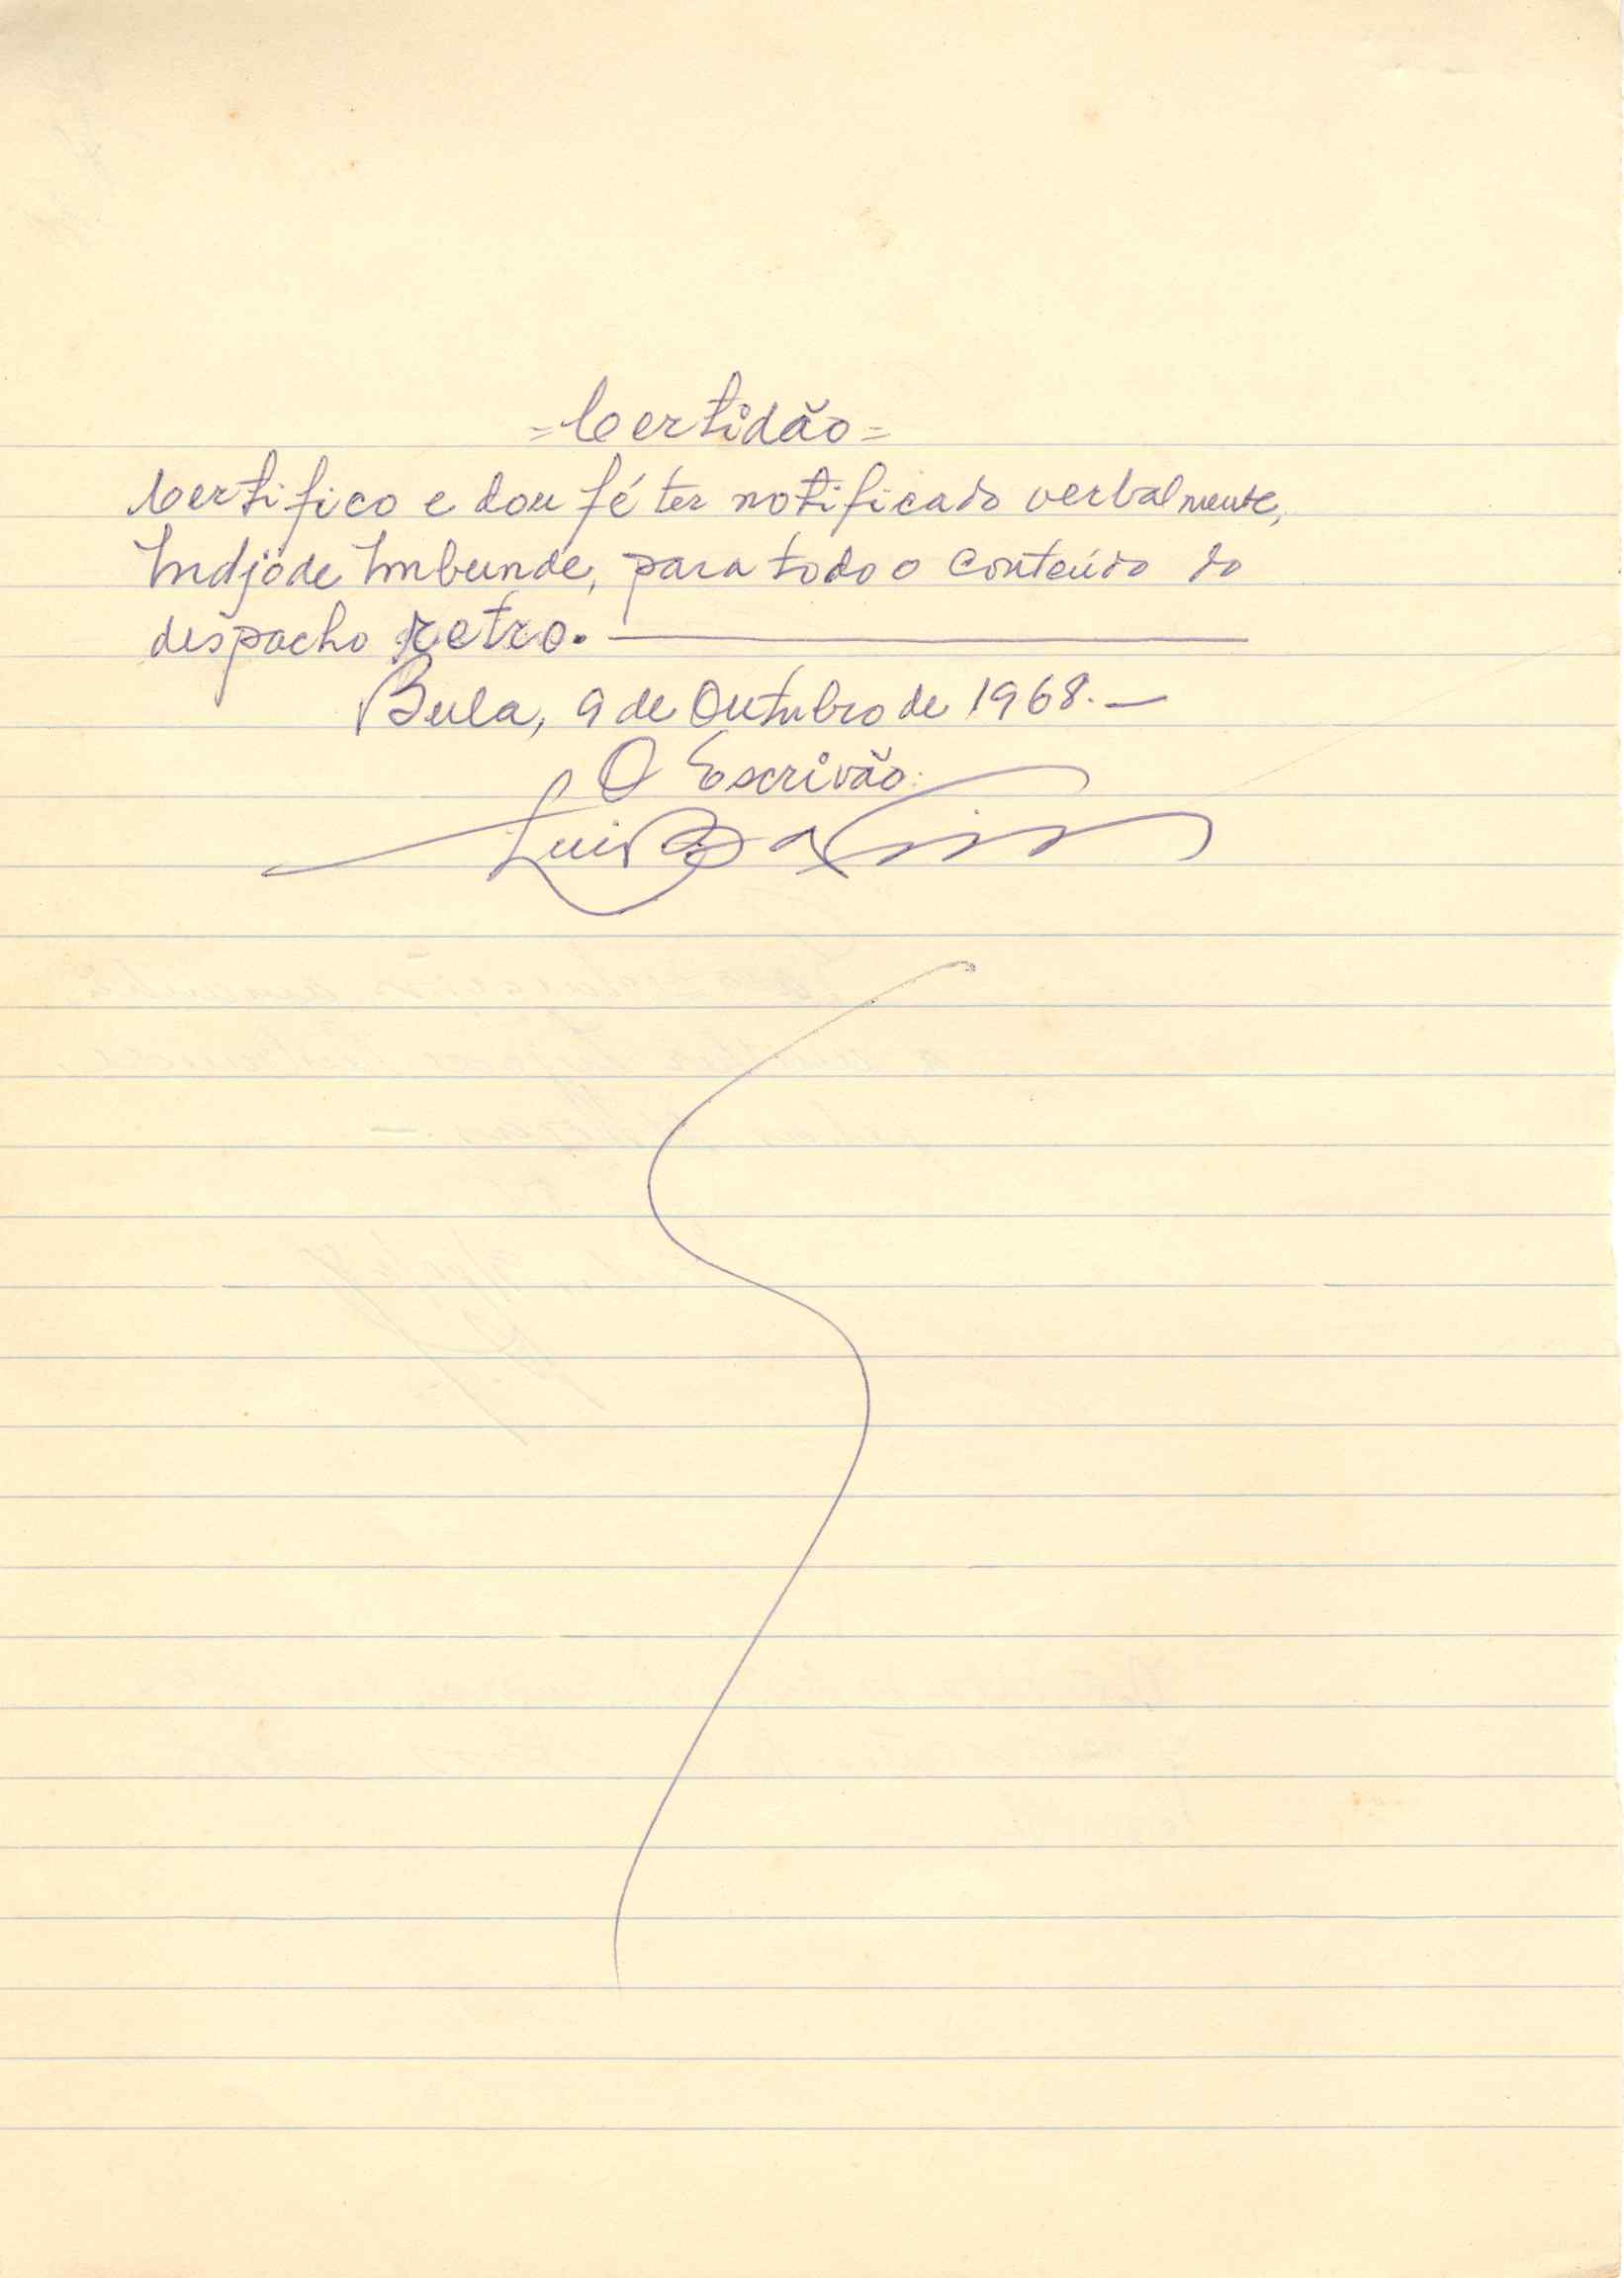 =Certidão=
Certifico e dou fé ter notificado verbalmente,
Indjóde Imbunde, para todo o conteúdo do
despacho retro.
Bula, 9 de Outubro de 1968.—
O Escrivão:
Luis